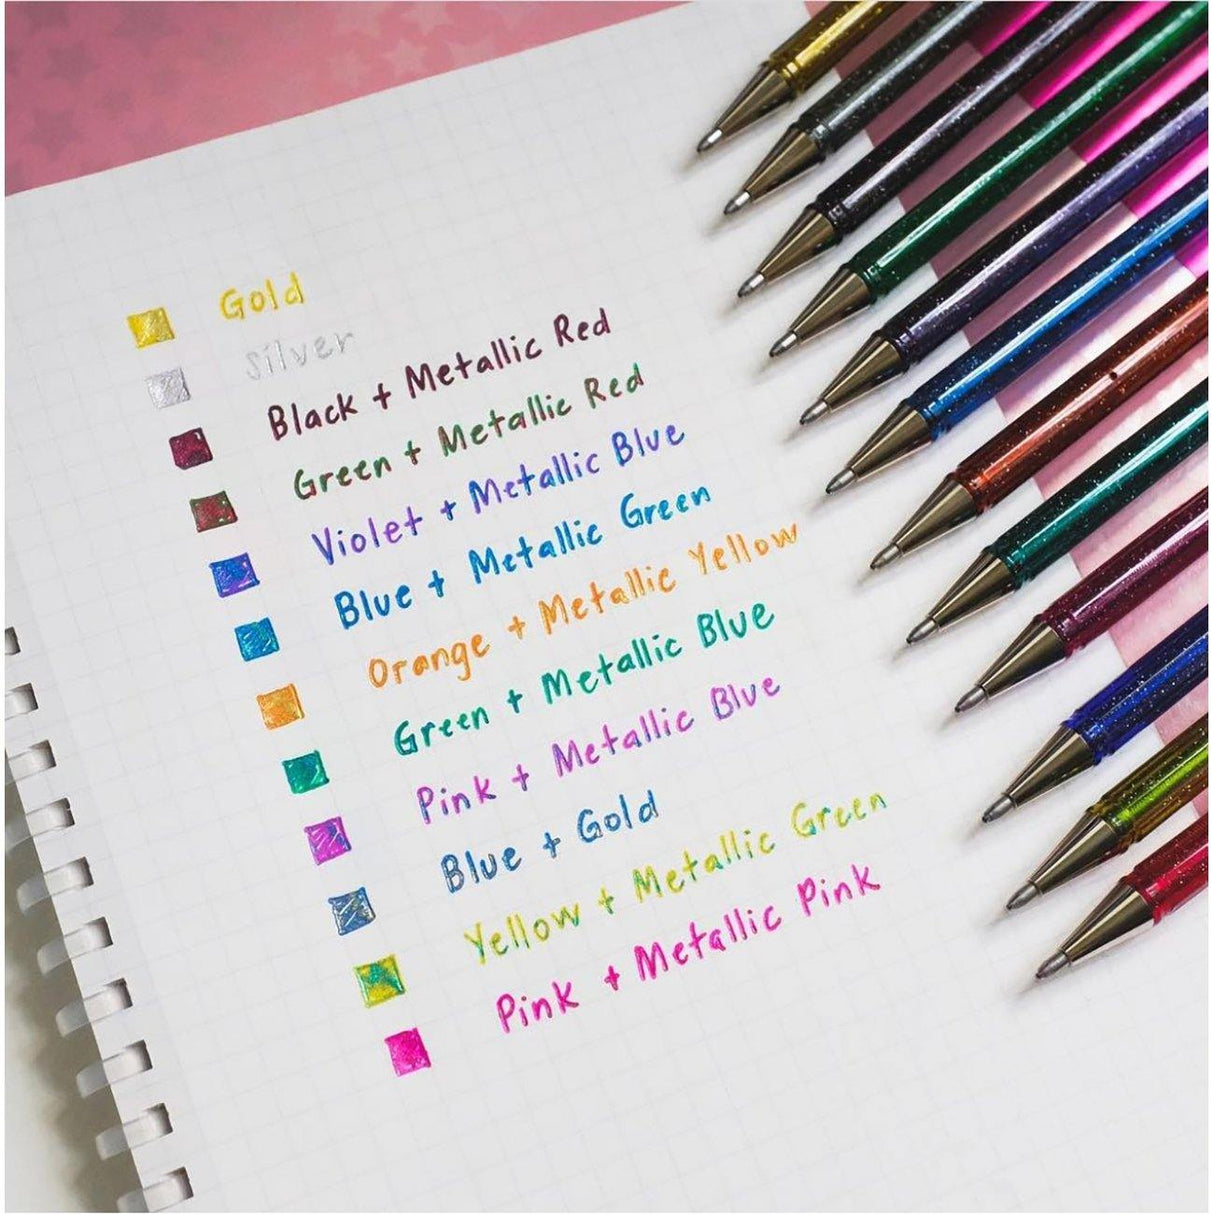 Gold
Silver
Black + Metallic Red
Green + Metallic Red
Violet + Metallic Blue
Blue + Metallic Green
Orange + Metallic Yellow
Green + Metallic Blue
Pink + Metallic Blue
Blue + Gold
Yellow + Metallic Green
Pink + Metallic Pink